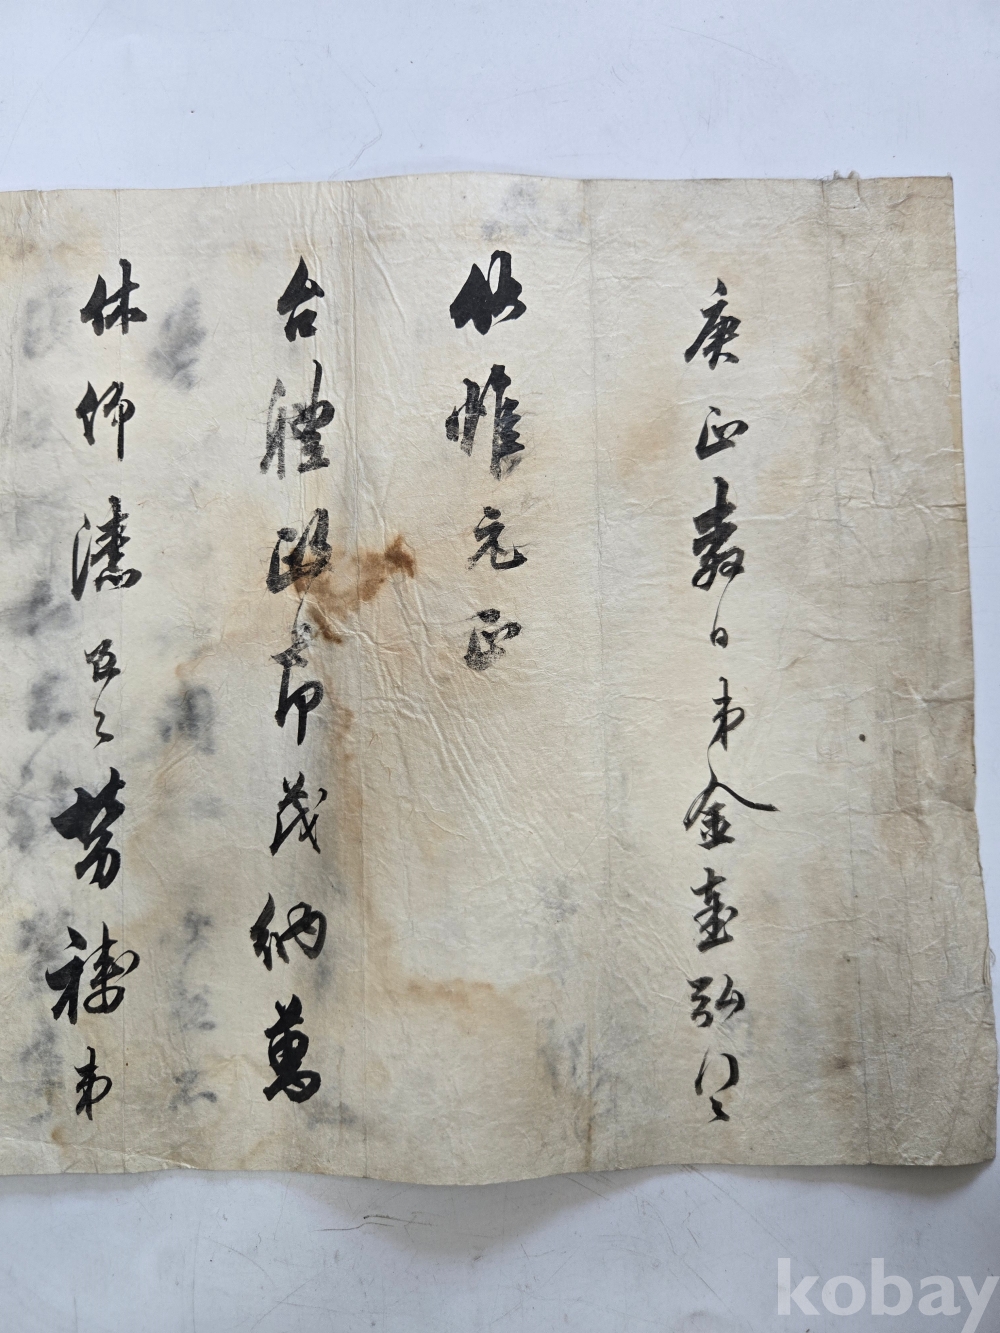 庚正念日弟金臺弘頓
伏惟元正
台體政郁茂納萬
休仰溸區區勞禱弟
kobay